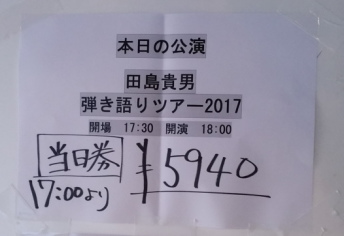 本日の公演
田島貴男
弾き語りツアー2017
開場 17:30 開演 18:00
当日券 ¥5940
17:00より